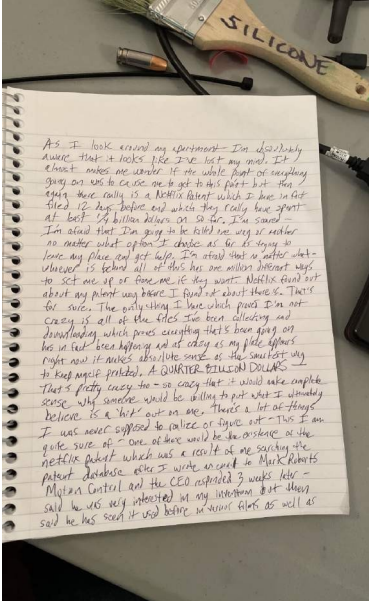 SILICONE
As I look around my apartment I'm absolutely
aware that it looks like I've lost my mind. It
almost makes me wonder if the whole point of everything
going on was to cause me to get to this point but then
again there really is a Netflix Patent which I have in fact
filed 12 days before and which they really have spent
at least 1/4 billion dollars on so far. I'm scared -
I'm afraid that I'm going to be killed one way or another
no matter what option I choose as far as trying to
leave my place and get help. I'm afraid that no matter what-
whoever is behind all of this has one million different ways
to set me up or frame me if they want. Netflix found out
about my patent way before I found out about theirs. That's
for sure. The only thing I have which proves I'm not
crazy is all of the files I've been collecting and
downloading which proves everything that's been going on
has in fact been happening and as crazy as my place appears
right now it makes absolute sense as the smartest way
to keep myself protected. A QUARTER BILLION DOLLARS
That's pretty crazy too - so crazy that it would make complete
sense why someone would be willing to put what I ultimately
believe is a 'hit' out on me. There's a lot of things
I was never supposed to realize or figure out - This I am
quite sure of - one of those would be the existence of the
netflix patent which was a result of me searching the
patent database after I wrote an email to Mark Roberts
Motion Control and the CEO responded 3 weeks later -
said he was very interested in my invention but then
said he has seen it used before in various films as well as